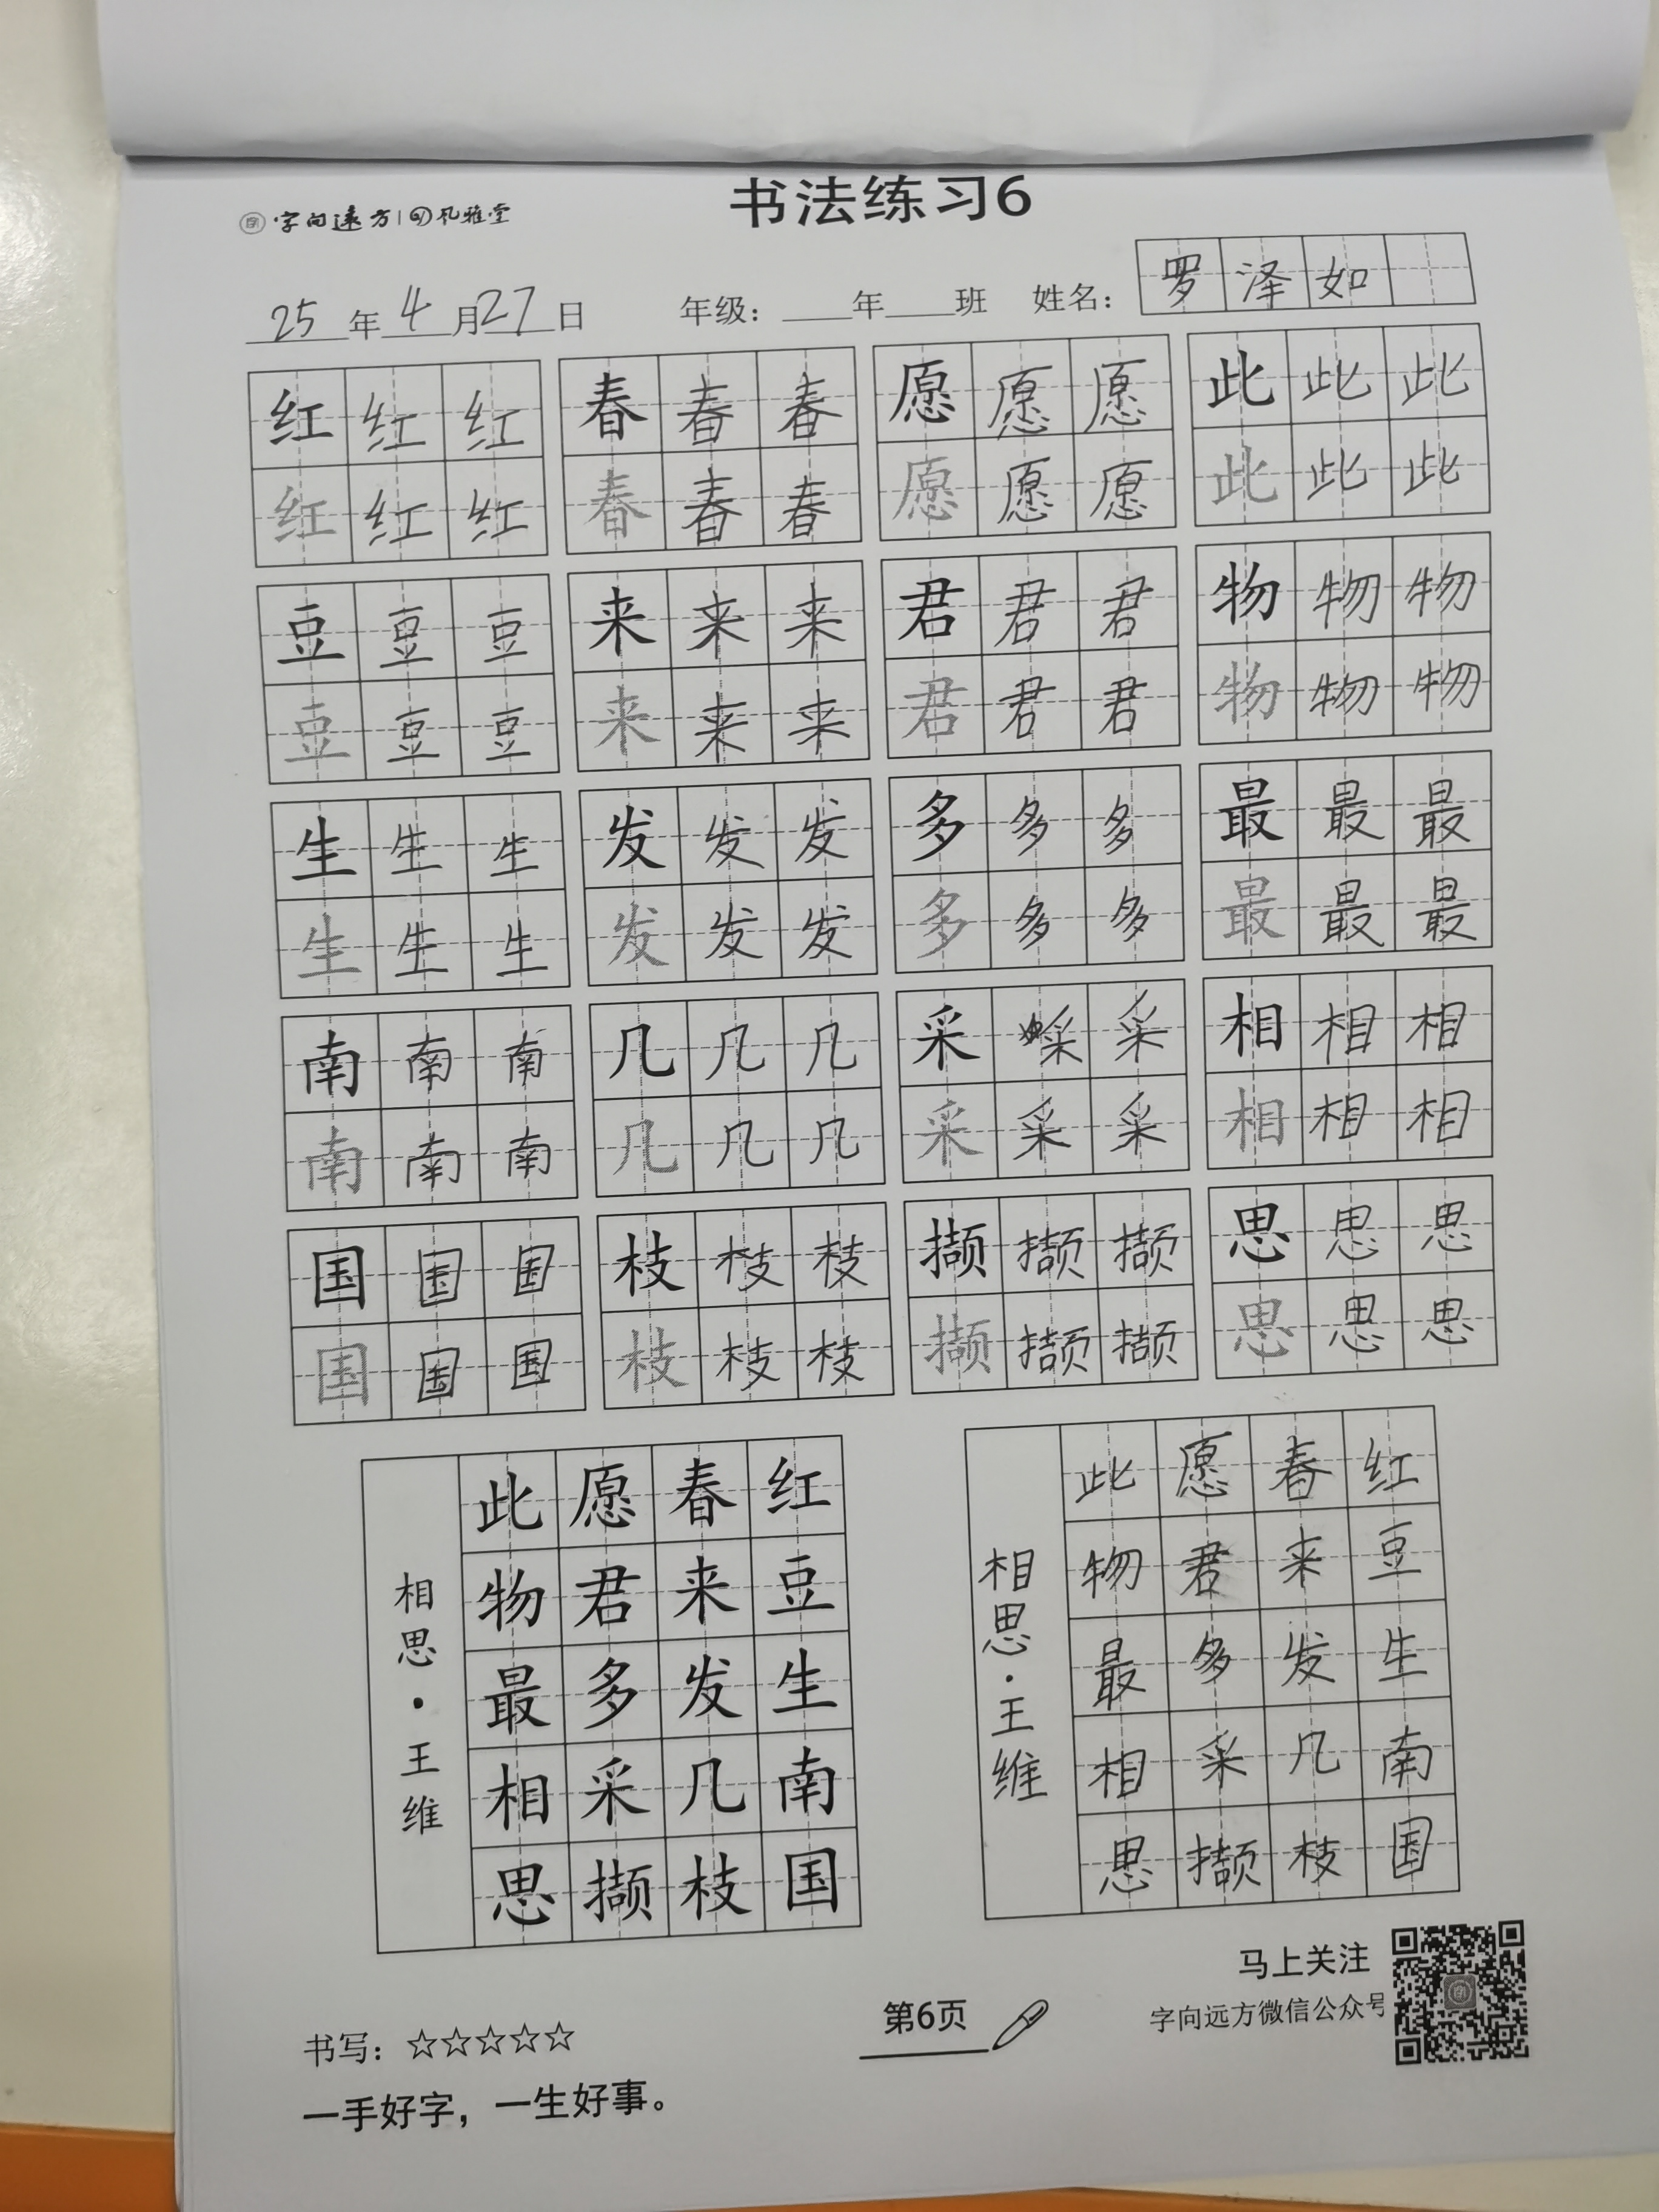 字向远方 | 礼雅堂
书法练习6
25年4月27日 年级：____年____班 姓名：罗泽如
红红红 春春春 愿愿愿 此此此
红红红 春春春 愿愿愿 此此此
豆豆豆 来来来 君君君 物物物
豆豆豆 来来来 君君君 物物物
生生生 发发发 多多多 最最最
生生生 发发发 多多多 最最最
南南南 几几几 采采采 相相相
南南南 几几几 采采采 相相相
国国国 枝枝枝 撷撷撷 思思思
国国国 枝枝枝 撷撷撷 思思思
红豆生南国
春来发几枝
愿君多采撷
此物最相思
相思·王维
红豆生南国
春来发几枝
愿君多采撷
此物最相思
相思·王维
书写：☆☆☆☆☆
一手好字，一生好事。
第6页
马上关注
字向远方微信公众号